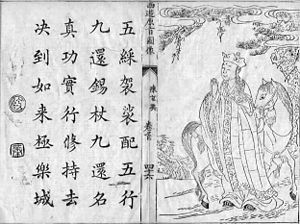 西遊原旨圖像 陳玄奘 卷首 四六
五綵袈裟配五行
九還錫杖九還名
真功實行修持去
决到如來極樂城